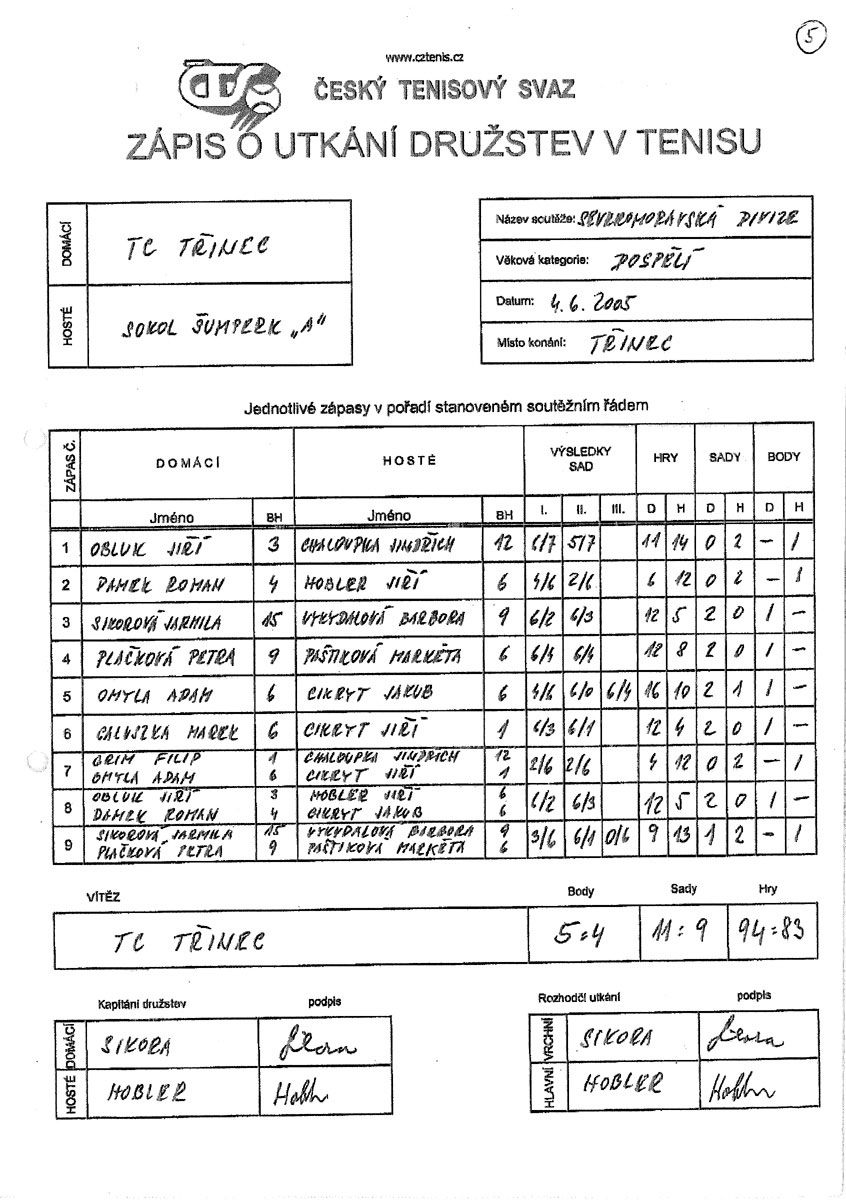 5
www.cztenis.cz
ČESKÝ TENISOVÝ SVAZ
ZÁPIS O UTKÁNÍ DRUŽSTEV V TENISU
DOMÁCÍ TC TŘINEC
HOSTÉ SOKOL ŠUMPERK „A"
Název soutěže: SEVEROMORAVSKÁ DIVIZE
Věková kategorie: DOSPĚLÍ
Datum: 4.6.2005
Místo konání: TŘINEC
Jednotlivé zápasy v pořadí stanoveném soutěžním řádem
ZÁPAS Č. DOMÁCÍ HOSTÉ VÝSLEDKY SAD HRY SADY BODY
Jméno BH Jméno BH I. II. III. D H D H D H
1 OBLUK JIŘÍ 3 CHALOUPKA JINDŘICH 12 6/7 5/7 11 14 0 2 – 1
2 DAMEK ROMAN 4 HOBLER JIŘÍ 6 4/6 2/6 6 12 0 2 – 1
3 SIKOROVÁ JARMILA 15 VYKYDALOVÁ BARBORA 9 6/2 6/3 12 5 2 0 1 –
4 PLAČKOVÁ PETRA 9 PAŠTIKOVÁ MARKÉTA 6 6/4 6/4 12 8 2 0 1 –
5 OMYLA ADAM 6 CIKRYT JAKUB 6 4/6 6/0 6/4 16 10 2 1 1 –
6 GALUSZKA MAREK 6 CIKRYT JIŘÍ 1 6/3 6/1 12 4 2 0 1 –
7 GRIM FILIP 1 CHALOUPKA JINDŘICH 12 2/6 2/6 4 12 0 2 – 1
OMYLA ADAM 6 CIKRYT JIŘÍ 1
8 OBLUK JIŘÍ 3 HOBLER JIŘÍ 6 6/2 6/3 12 5 2 0 1 –
DAMEK ROMAN 4 CIKRYT JAKUB 6
9 SIKOROVÁ JARMILA 15 VYKYDALOVÁ BARBORA 9 3/6 6/1 0/6 9 13 1 2 – 1
PLAČKOVÁ PETRA 9 PAŠTIKOVÁ MARKÉTA 6
VÍTĚZ Body Sady Hry
TC TŘINEC 5:4 11:9 94:83
Kapitáni družstev podpis
DOMÁCÍ SIKORA
HOSTÉ HOBLER
Rozhodčí utkání podpis
VRCHNÍ SIKORA
HLAVNÍ HOBLER